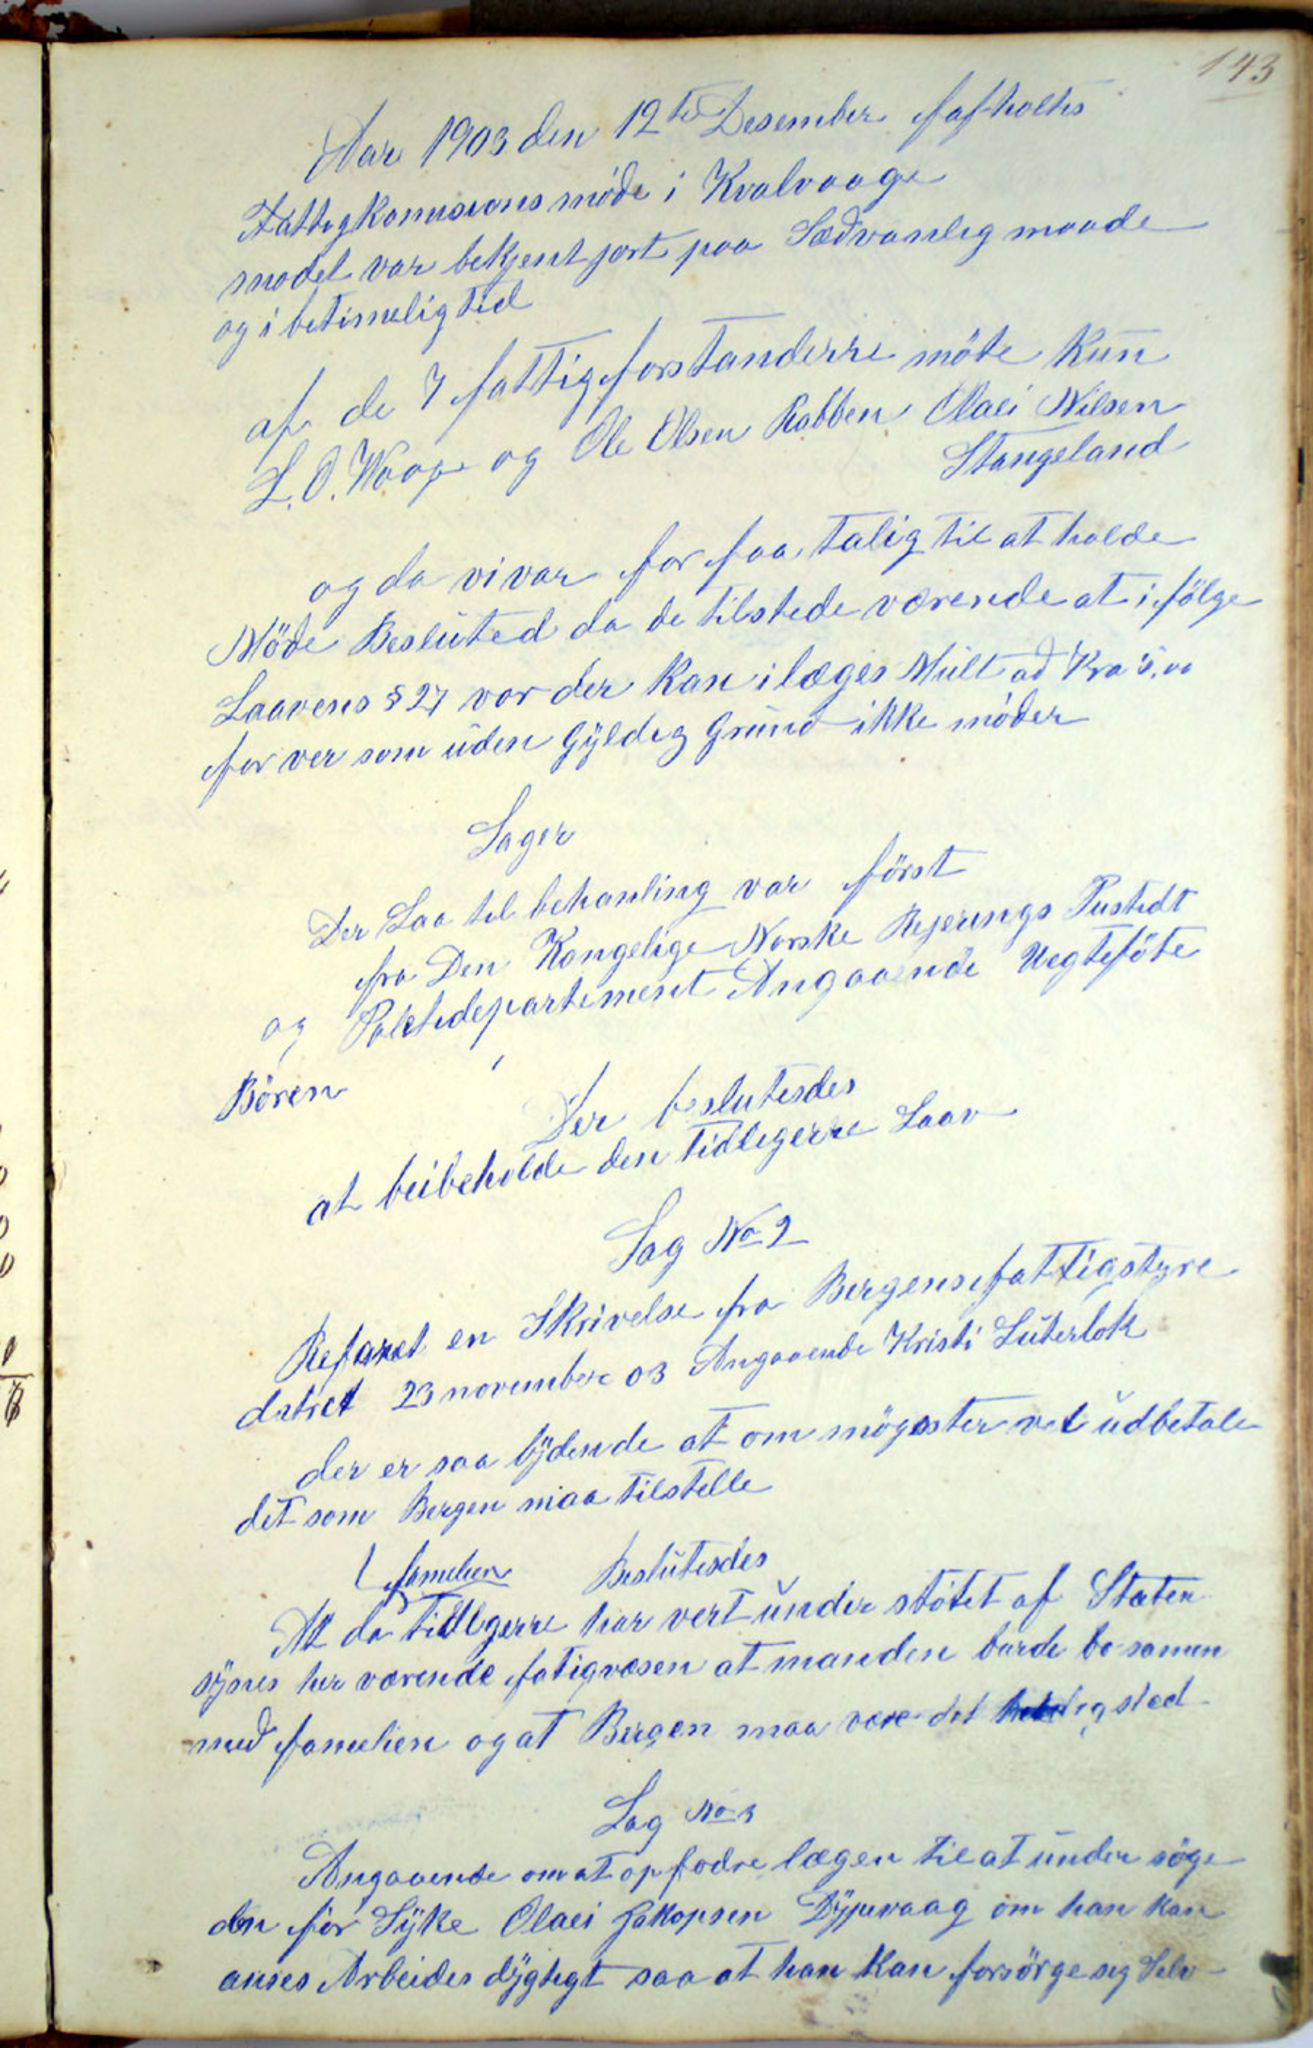 143
Aar 1903 den 12te Desember fafholtes
Fattigkomisions møde i Kvalvaage
mødet var bekjent gort paa Sædvanlig maade
og i betimelig tid
af de 7 fattigforstanderre møte Kun
L. O. Waage og Ole Olsen Rabben Olaei Nilsen
Stangeland
og da vi var for faa talig til at holde
Møde Besluted da de tilstede værende at ifølge
Laavens § 27 vor der Kan ilæges Mult ad Kra 5,00
for ver som uden Gyldig Grund ikke møder
Sager
Der Laa til behanling var først
fra Den Kongelige Norske Rejerings Justidt
og Politidepartement Angaaende Uegteføte
Bören
Der beslutesdes
at beibeholde den tidligerre Laav
Sag No 2
Referet en Skrivelse fra Bergensfattigstyre
datret 23 november 03 Angaaende Kristi Luterlok
der er saa lydende at om møgster vel udbetale
det som Bergen maa tilstelle
familien Beslutesdes
At da tidligerre har vert under støtet af Staten
synes her værende fatigvæsen at manden burde bo samen
med familien og at Bergen maa være det sted
Sag No 3
Angaaende om at opfodre lægen til at under søge
den før Syke Olaei Jakopsen Dypevaag om han kan
anses Arbeides dygtigt saa at han Kan forsörge sig Selv